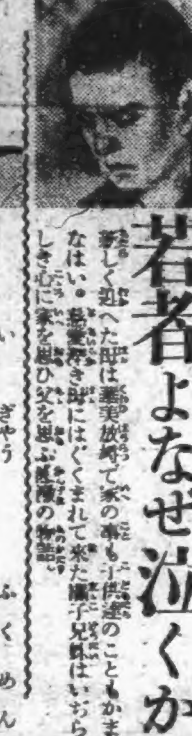 若者よなせ泣くか
新しく迎へた母は華美放縱で家の事も子供達のこともかま
なはい。慈愛深き母にはぐくまれて来た子兄妹はいぢら
しき心に家を思ひ父を思ふ の物語。
い ぎやう ふくめん